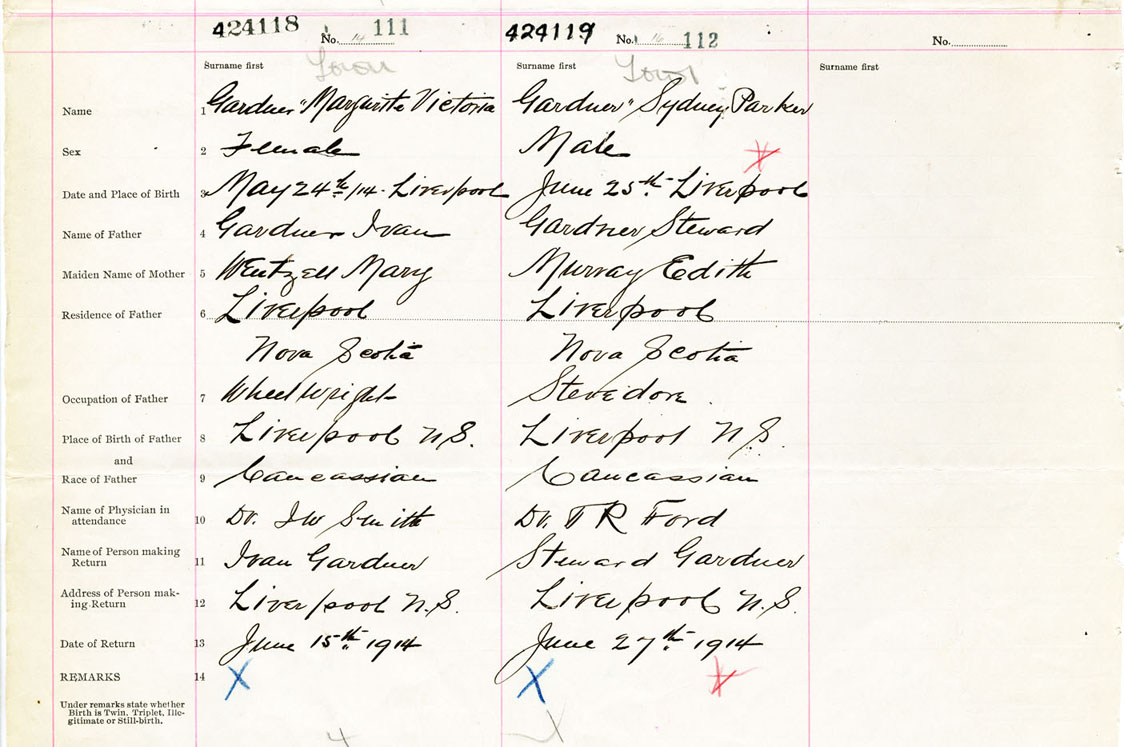 424118 No. 14 111 424119 No. 16 112 No.
Surname first Town Surname first Town Surname first
Name 1 Gardner "Marguerite Victoria Gardner" Sydney Parker
Sex 2 Female Male
Date and Place of Birth 3 May 24th/14. Liverpool June 25th Liverpool
Name of Father 4 Gardner Ivan Gardner Steward
Maiden Name of Mother 5 Wentzell Mary Murray Edith
Residence of Father 6 Liverpool Liverpool
Nova Scotia Nova Scotia
Occupation of Father 7 Wheelwright Stevedore.
Place of Birth of Father 8 Liverpool N.S. Liverpool N.S.
and
Race of Father 9 Caucassian Caucassian
Name of Physician in
attendance 10 Dr. J W Smith Dr. T R Ford
Name of Person making
Return 11 Ivan Gardner Steward Gardner
Address of Person mak-
ing Return 12 Liverpool N.S. Liverpool N.S.
Date of Return 13 June 15th 1914 June 27th 1914
REMARKS 14 X X
Under remarks state whether
Birth is Twin, Triplet, Ille-
gitimate or Still-birth.